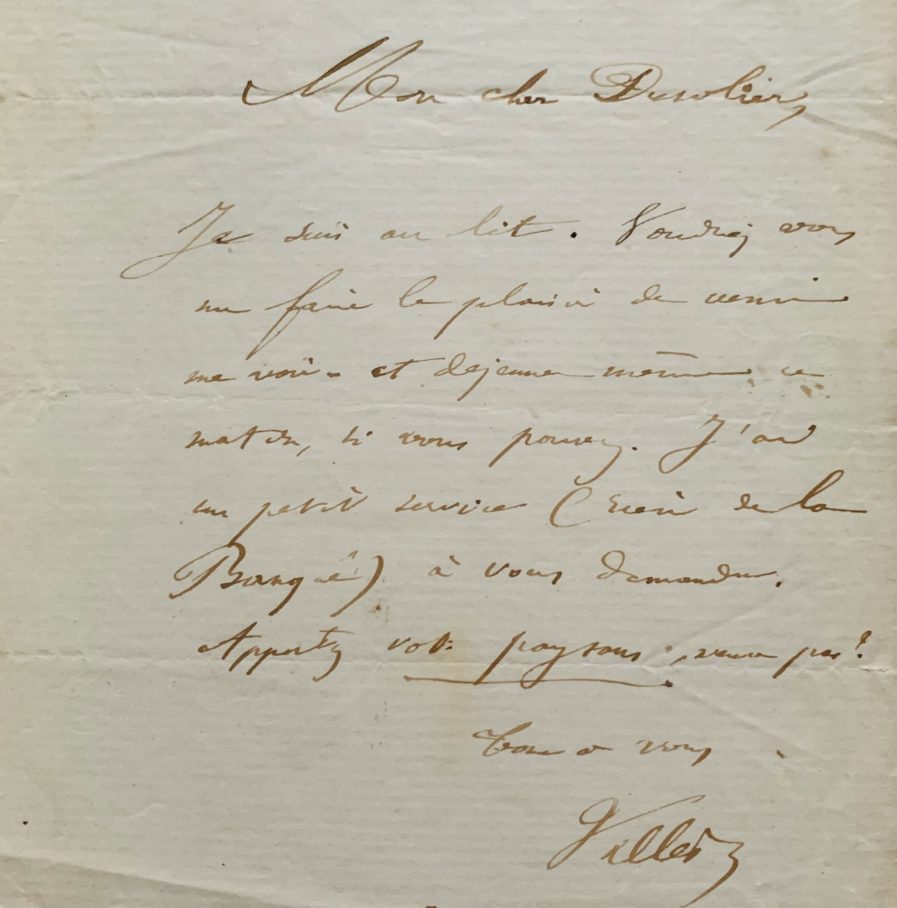 Mon cher Dusolier,
Je suis au lit. Voudrez vous
me faire le plaisir de venir
me voir - et déjeuner même ce
matin, si vous pouvez. J'ai
un petit service (rien de la
Banque) à vous demander.
Apportez votre paysans, pas?
Tout à vous
Villiers